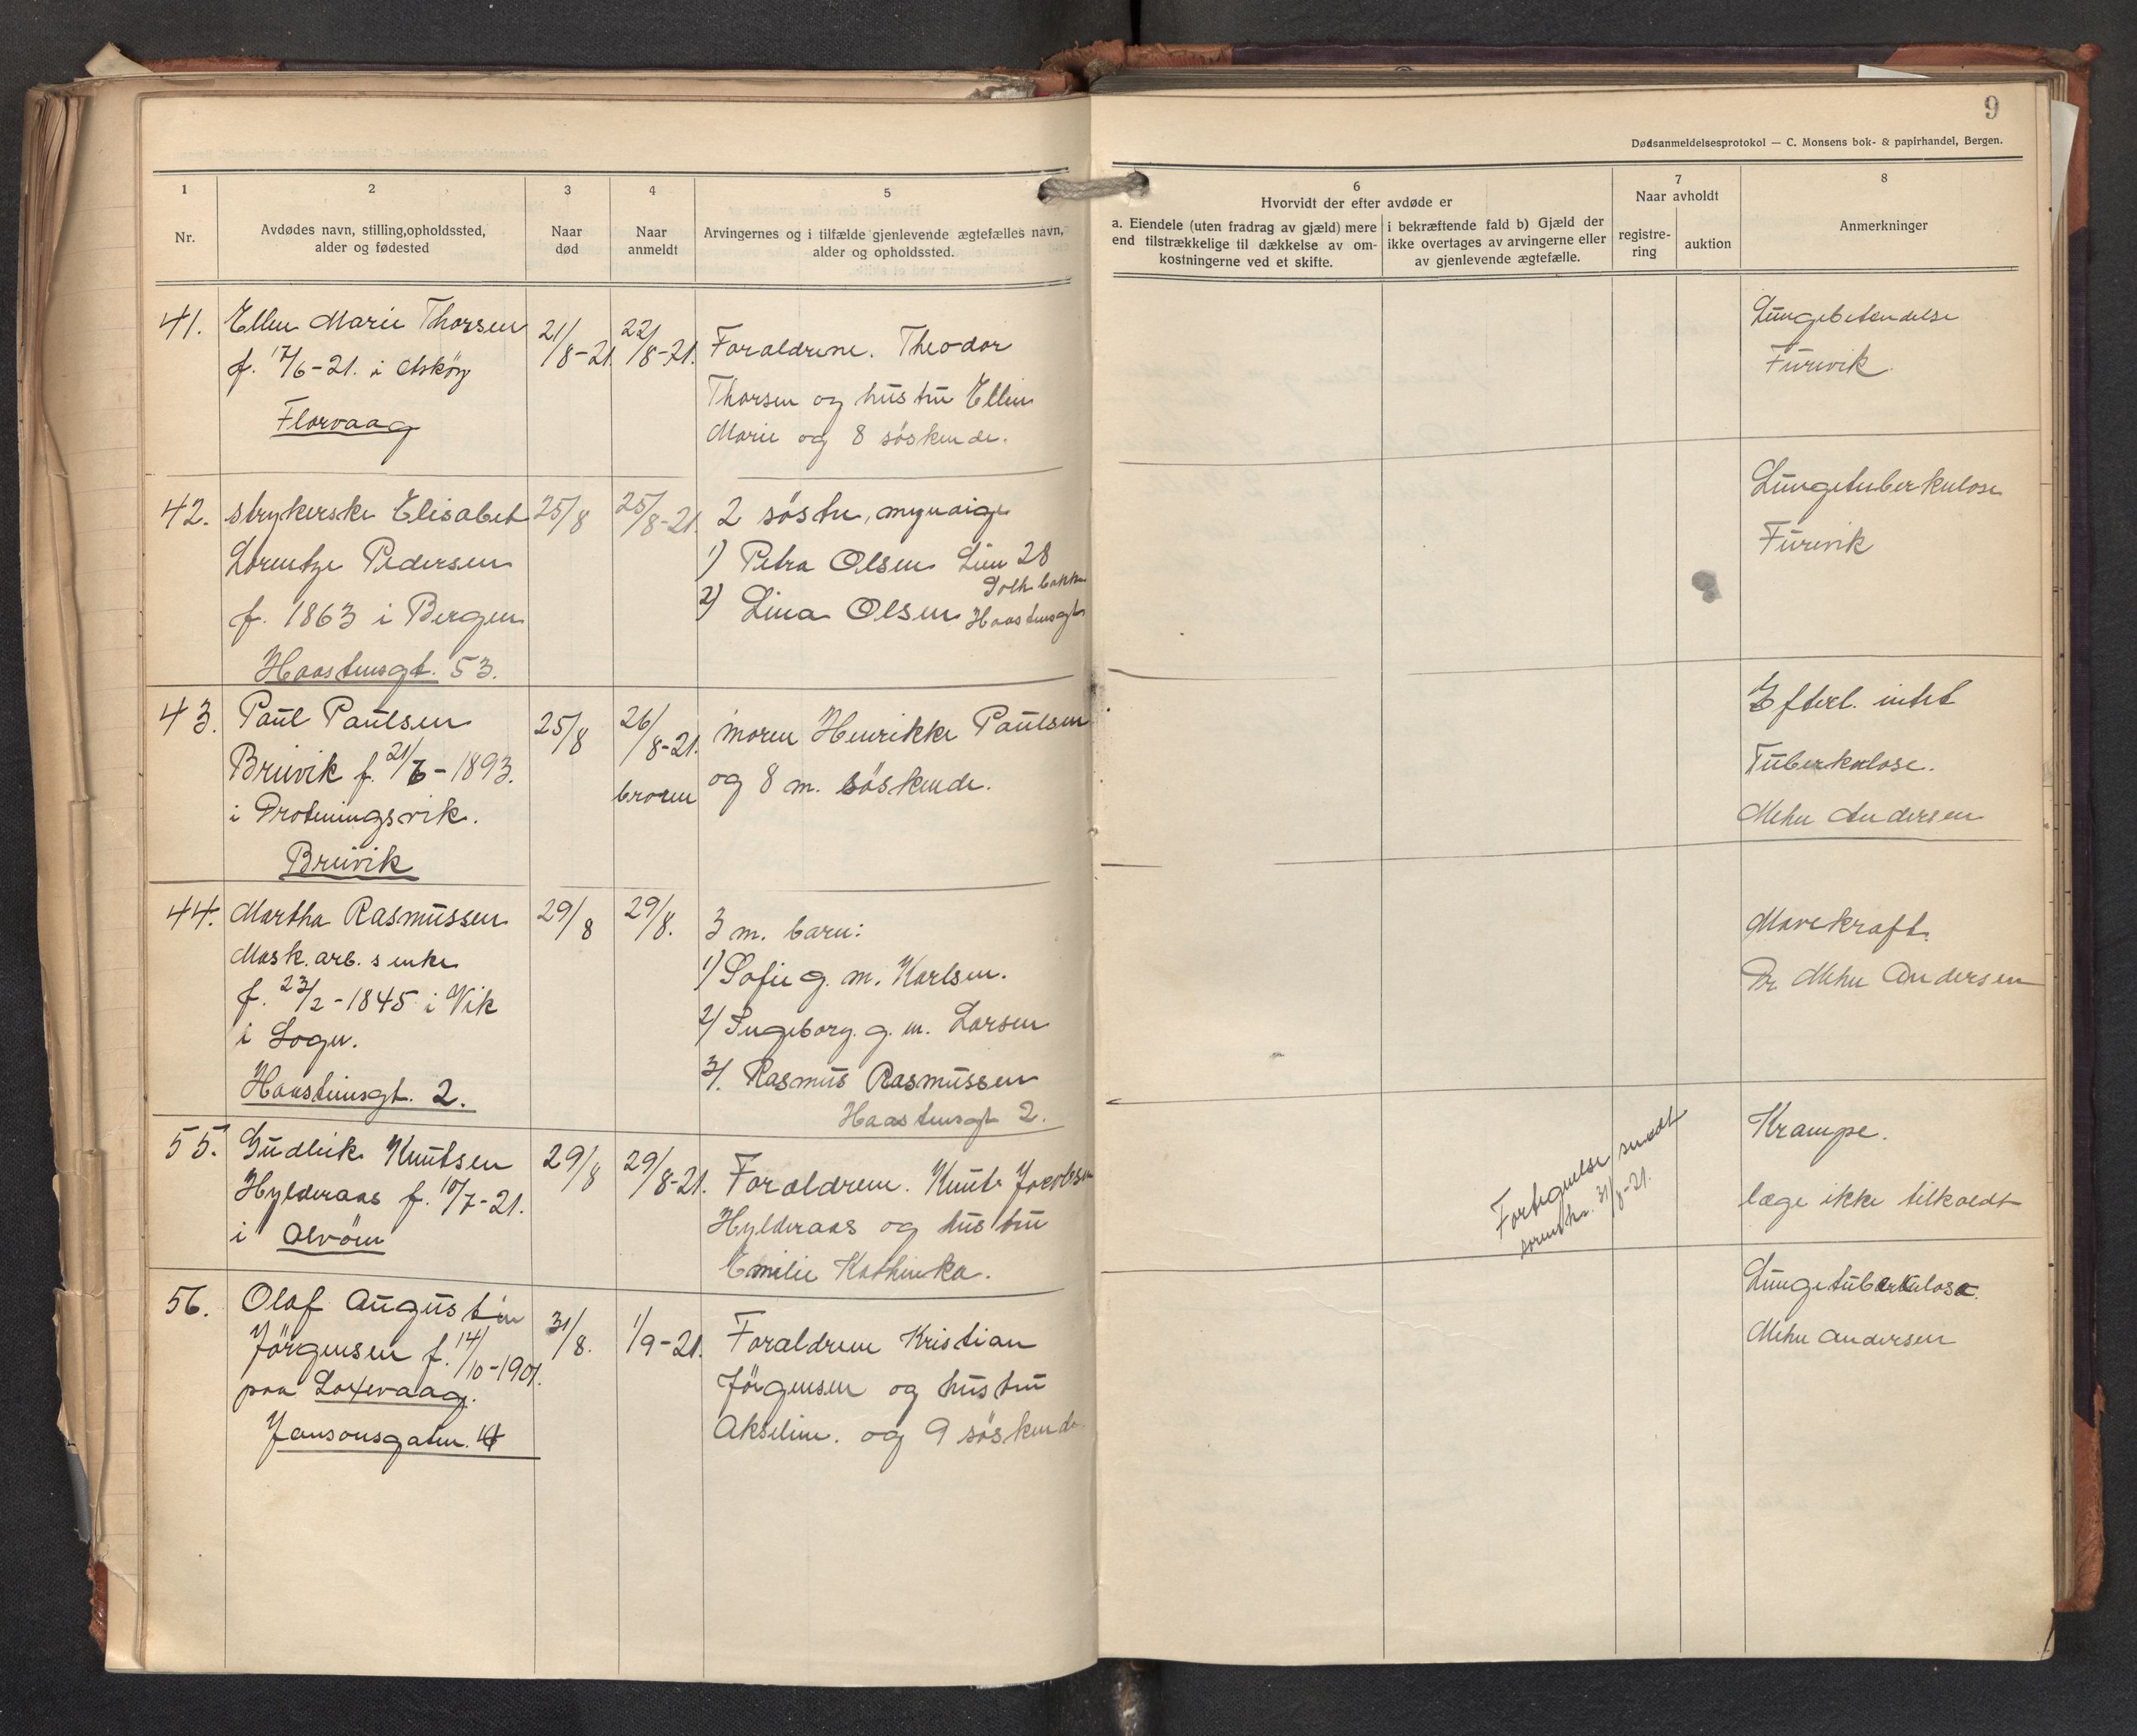 9
Dødsanmeldelsesprotokol — C. Monsens bok- & papirhandel, Bergen.
1
Nr.
2
Avdødes navn, stilling, opholdssted,
alder og fødested
3
Naar
død
4
Naar
anmeldt
5
Arvingernes og i tilfælde gjenlevende ægtefælles navn,
alder og opholdssted.
6
Hvorvidt der efter avdøde er
a. Eiendele (uten fradrag av gjæld) mere
end tilstrækkelige til dækkelse av om-
kostningerne ved et skifte.
i bekræftende fald b) Gjæld der
ikke overtages av arvingerne eller
av gjenlevende ægtefælle.
7
Naar avholdt
registre-
ring
auktion
8
Anmerkninger
41.
Ellen Marie Thorsen
f. 17/6-21. i Askøy
Florvaag
21/8-21.
22/8-21.
Foraldrene. Theodor
Thorsen og hustru Ellen
Marie og 8 søskende.
Lungebetendelse
Furevik.
42.
strykerske Elisabet
Lorentze Pedersen
f. 1863 i Bergen
Haasteinsgt. 53.
25/8
25/8-21.
2 søstre, myndige
1) Petra Olsen Lien 28
2) Lina Olsen
Haasteinsgt
Lungetuberkulose
Furevik
43.
Paul Paulsen
Bruvik f. 21/6-1893.
i Drotningsvik.
Bruvik
25/8
26/8-21.
broren
moren Henrikke Paulsen
og 8 m. søskende.
Efterl. intet
Tuberkulose.
Mehn Andersen
44.
Martha Rasmussen
Mask. arb. s enke
f. 23/2-1845 i Vik
i Sogn.
Haasteinsgt. 2.
29/8
29/8.
3 m. barn:
1) Sofie g. m. Karlsen.
2) Ingeborg. g. m. Larsen
3). Rasmus Rasmussen
Haasteinsgt 2.
Mavekræft.
Dr. Mehn Andersen
55.
Gudleik Knutsen
Hylderaas f. 10/7-21.
i Alvøen
29/8
29/8-21.
Foraldrene. Knut Jacobsen
Hylderaas og hustru
Emilie Kathinka.
Fortegnelse sendt
31/8-21.
Krampe.
læge ikke tilkaldt
56.
Olaf Augustin
Jørgensen f. 14/10-1901.
paa Loxevaag.
Jansonsgaten.
31/8.
1/9-21.
Foraldrene Kristian
Jørgensen og hustru
Akseline. og 9 søskende
Lungetuberkulose.
Mehn Andersen